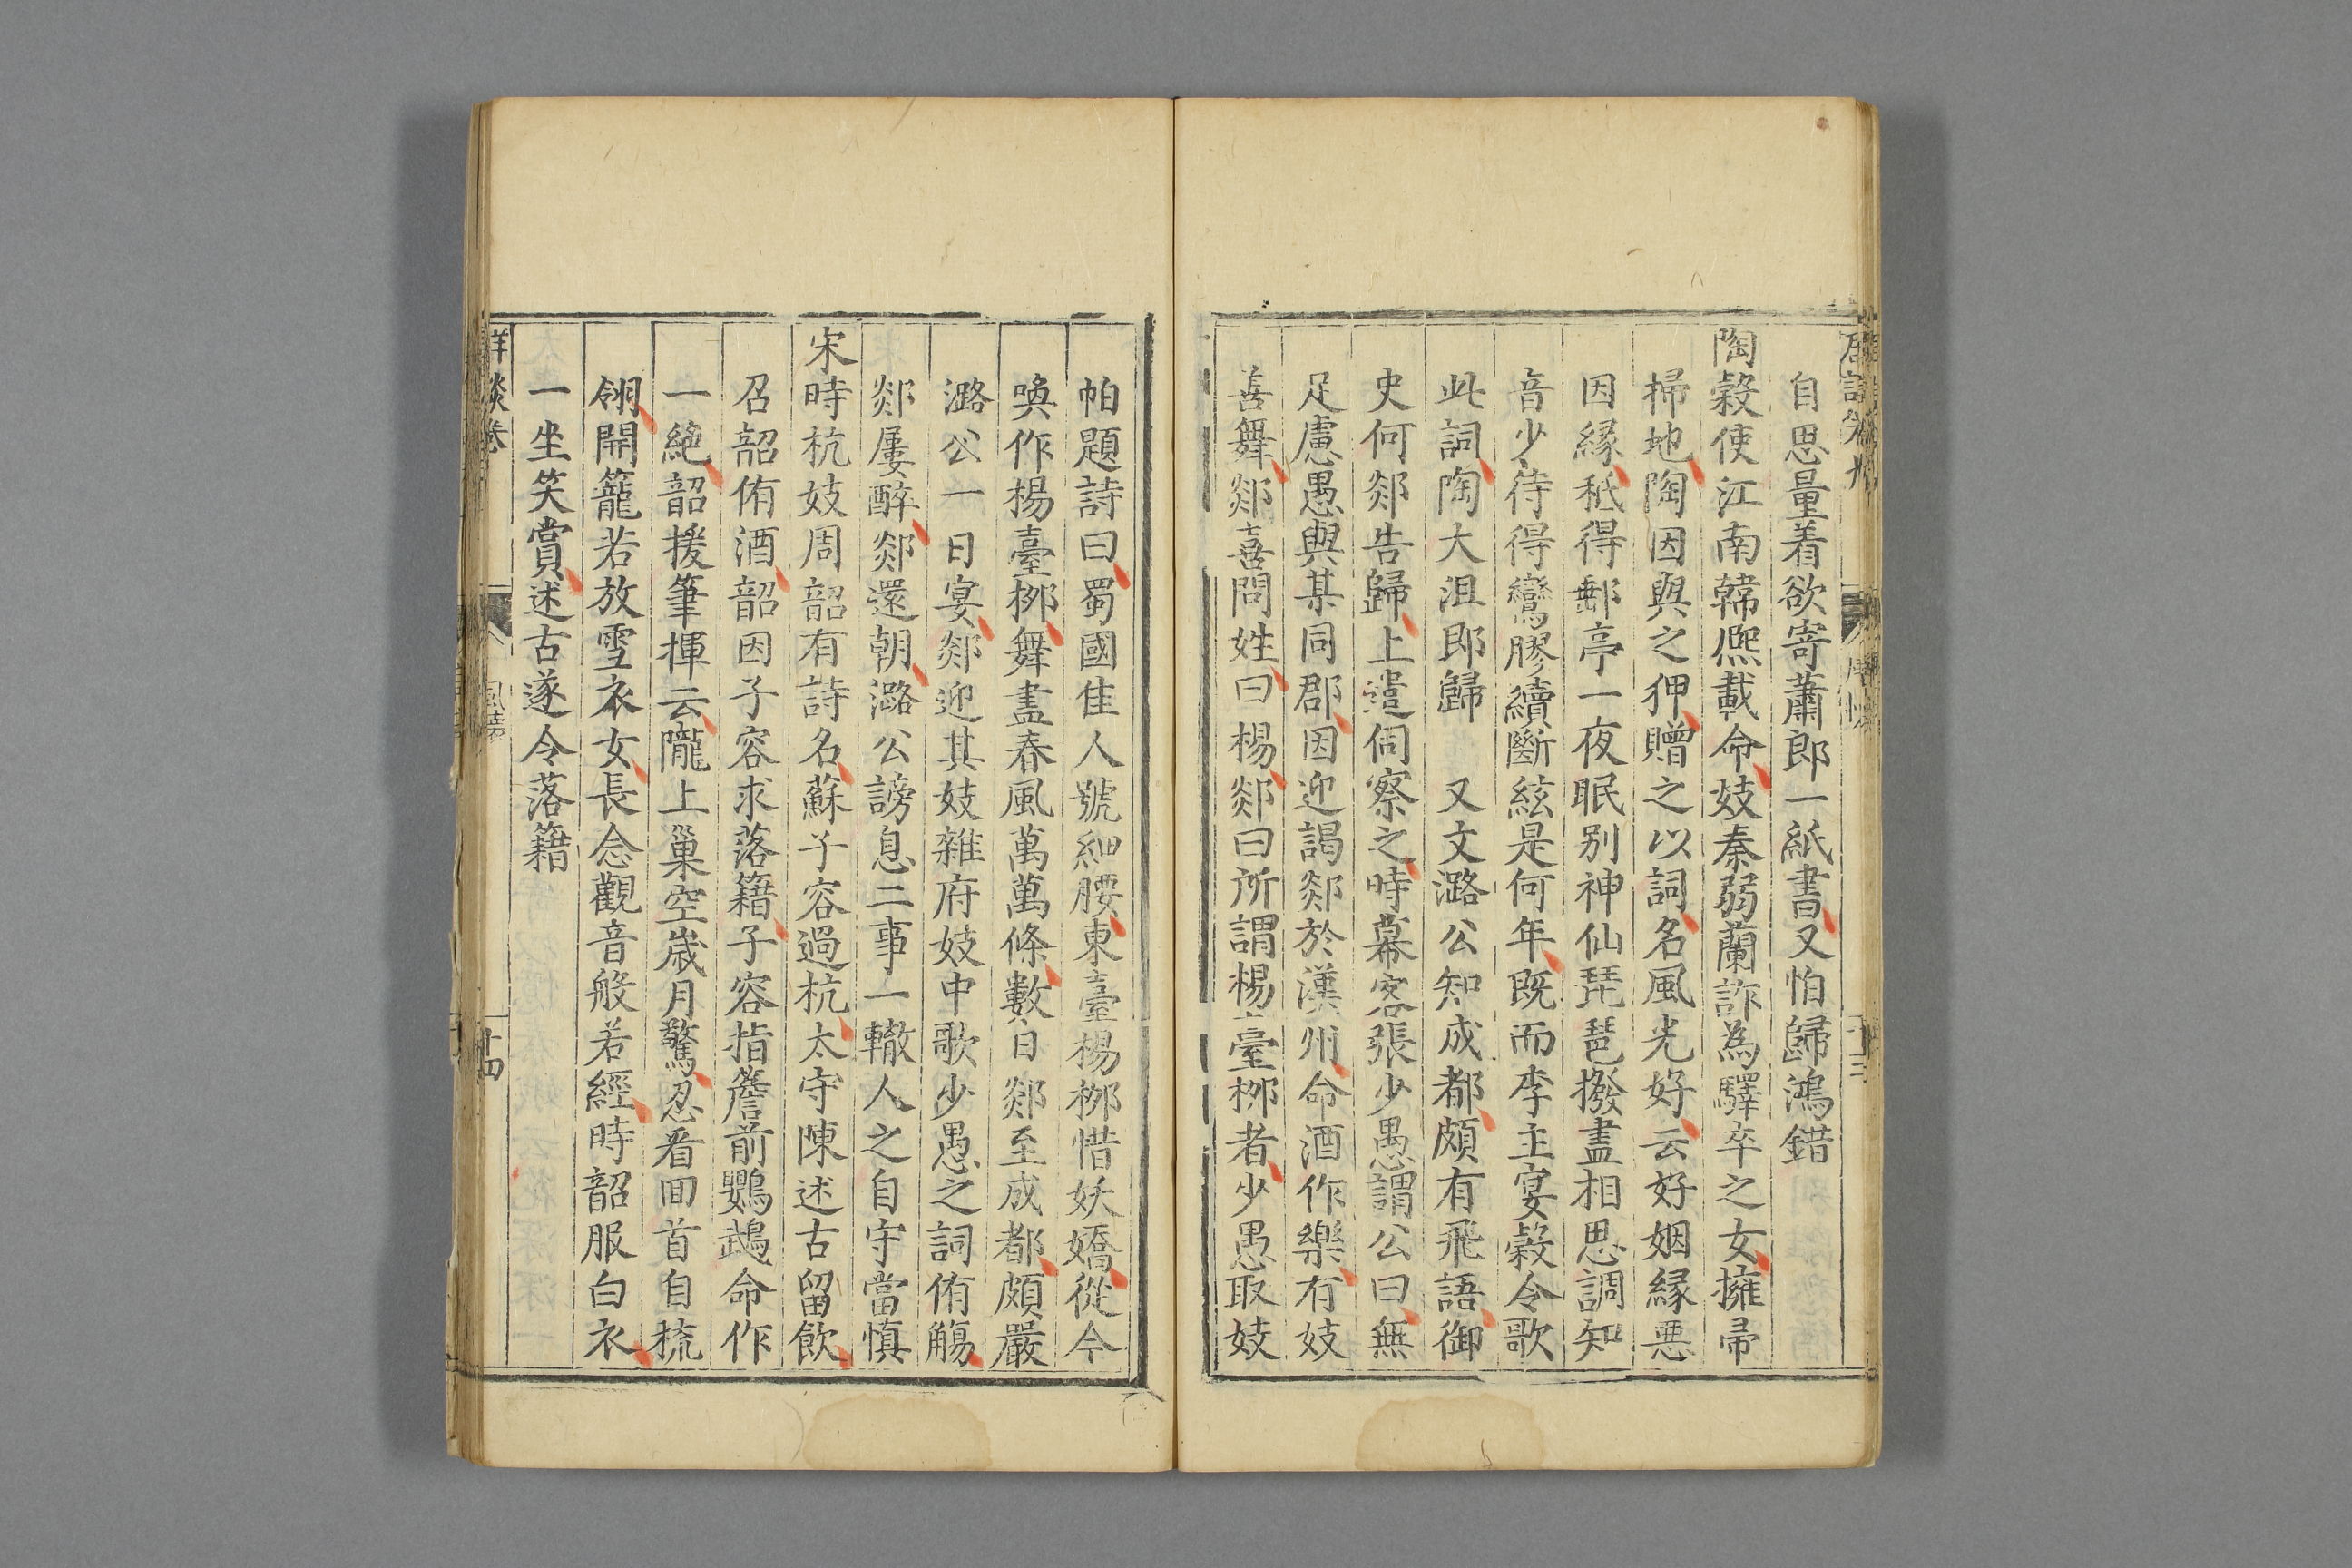 自思量着欲寄蕭郎一紙書又怕歸鴻錯
陶穀使江南韓熈載命妓秦弱蘭詐為驛卒之女擁帚
掃地陶因與之狎贈之以詞名風光好云好姻縁悪
因縁秪得郵亭一夜眠别神仙琵琶撥盡相思調知
音少待得鸞膠續斷絃是何年既而李主宴穀令歌
此詞陶大沮即歸　又文潞公知成都頗有飛語御
史何郯告歸上遣伺察之時幕客張少愚謂公曰無
足慮愚與某同郡因迎謁郯於漢州命酒作樂有妓
善舞郯喜問姓曰楊郯曰所謂楊臺栁者少愚取妓
帕題詩曰蜀國佳人號細腰東臺楊栁惜妖嬌從今
喚作楊臺栁舞盡春風萬萬條數日郯至成都頗嚴
潞公一日宴郯迎其妓雜府妓中歌少愚之詞侑觴
郯屢醉郯還朝潞公謗息二事一轍人之自守當慎
宋時杭妓周韶有詩名蘇子容過杭太守陳述古留飲
召韶侑酒韶因子容求落籍子容指簷前鸚鵡命作
一絶韶援筆揮云隴上巢空歲月驚忍看回首自梳
翎開籠若放雪衣女長念觀音般若經時韶服白衣
一坐笑賞述古遂令落籍
十四